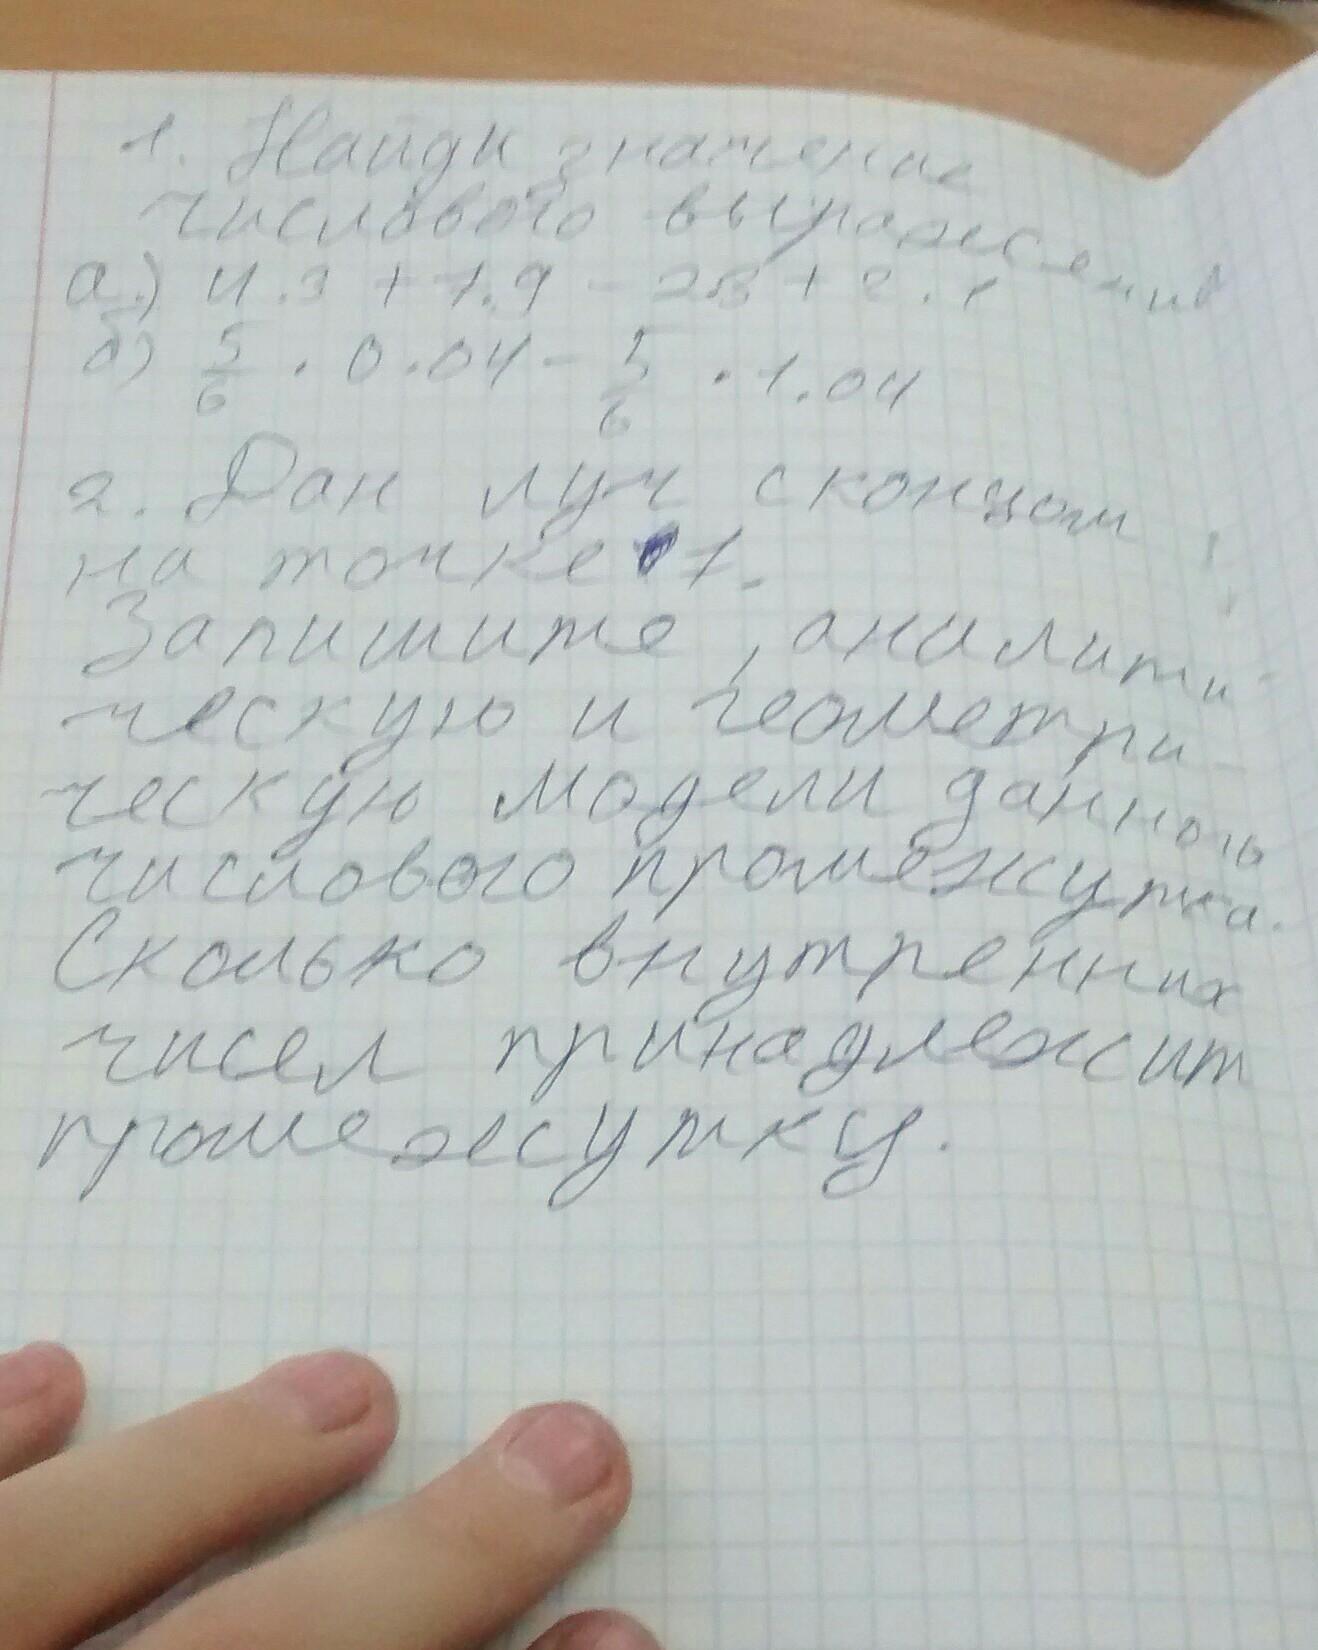 1. Найди значение
числового выражения
а.) 4.3 + 7.9 - 28 + 2.1
б) 5/6 · 0.04 - 5/6 · 1.04
2. Дан луч с концом
на точке 1.
Запишите, аналити-
ческую и геометри-
ческую модели данного
числового промежутка.
Сколько внутренних
чисел принадлежит
промежутку.